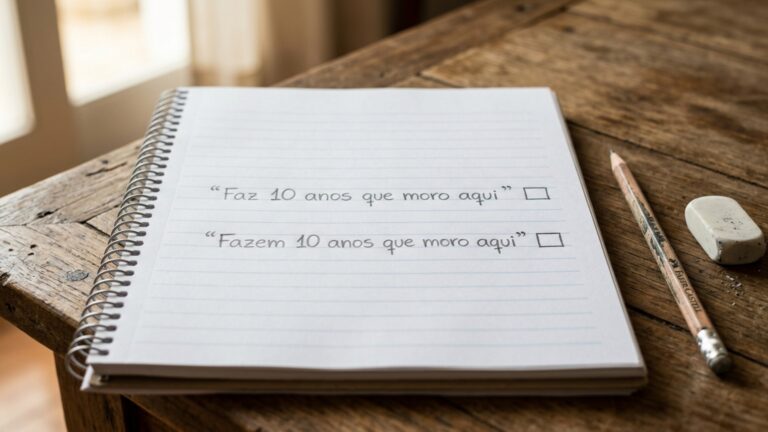 “Faz 10 anos que moro aqui” ☐
“Fazem 10 anos que moro aqui” ☐